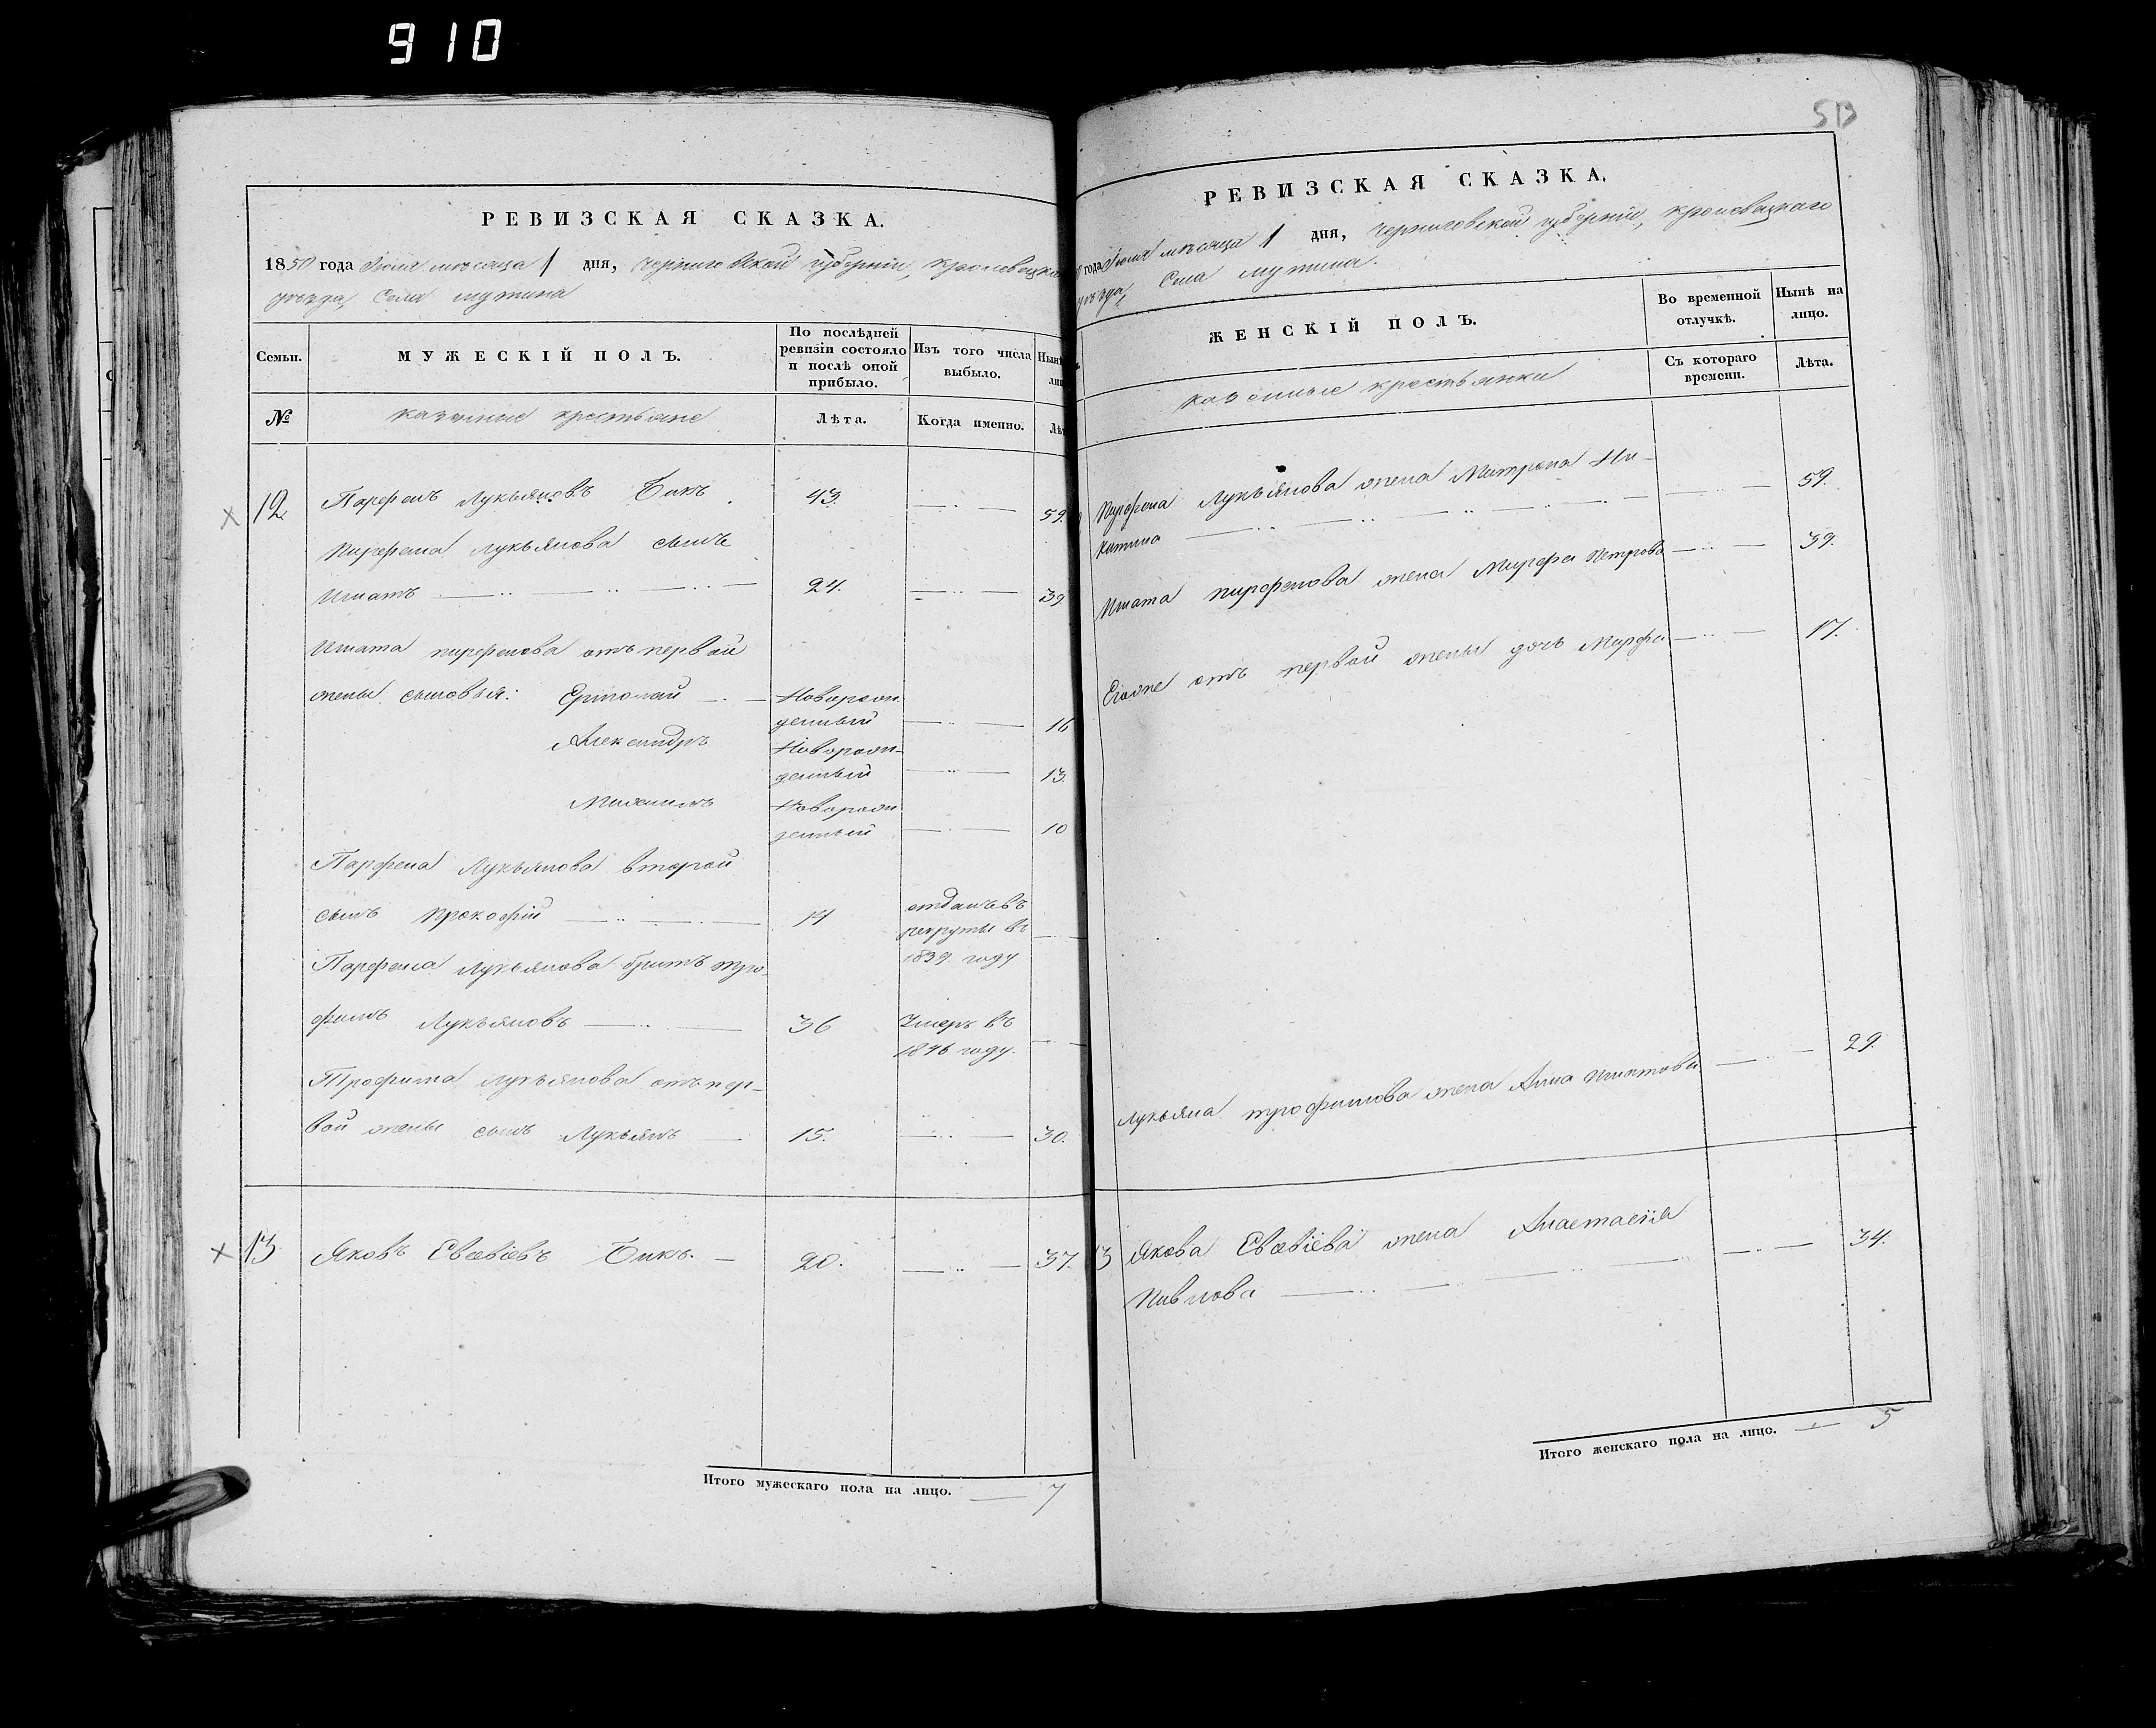 910
РЕВИЗСКАЯ СКАЗКА.
1850 года Июля мѣсяца 1 дня, Черниговской губерніи, кролевецкаго
уѣзда, Села мутина
Семьи.
МУЖЕСКІЙ ПОЛЪ.
По послѣдней
ревизіи состояло
и послѣ оной
прибыло.
Изъ того числа
выбыло.
Нынѣ
лиц
№
казенные крестьяне
Лѣта.
Когда именно.
Лѣт
12. Парфенъ Лукьяновъ Бикъ. 43. 59.
Парфена Лукьянова сынъ
Игнатъ 24. 39
Игната парфенова отъ первой
жены сыновья: Ермолай Новорож
денный 16
Александръ Новорож-
денный 13.
Михаилъ Новорож
денный 10
Парфена Лукьянова второй
сынъ Прокофій 14 отданъ въ
рекруты въ
1839 году
Парфена Лукьянова братъ тро-
фимъ Лукьяновъ 36 Умеръ въ
1846 году.
Трофима Лукьянова отъ пер-
вой жены сынъ Лукьянъ 15. 30.
13 Яковъ Евсѣвіевъ Бикъ. 20. 37.
Итого мужескаго пола на лицо. 7
513
РЕВИЗСКАЯ СКАЗКА.
года Июля мѣсяца 1 дня, Черниговской губерніи, кролевецкаго
уѣзда, Села мутина.
ЖЕНСКІЙ ПОЛЪ.
Во временной
отлучкѣ.
Нынѣ на
лицо.
казенные крестьянки
Съ котораго
времени.
Лѣта.
Парфена Лукьянова жена Матрона Ни-
китина 59.
Игната парфенова жена Марфа Петрова 39.
Егоже отъ первой жены дочь Марфа 17.
Лукьяна трофимова жена Анна Игнатова 29.
13 Якова Евсѣвіева жена Анастасія
Павлова 34.
Итого женскаго пола на лицо. 5